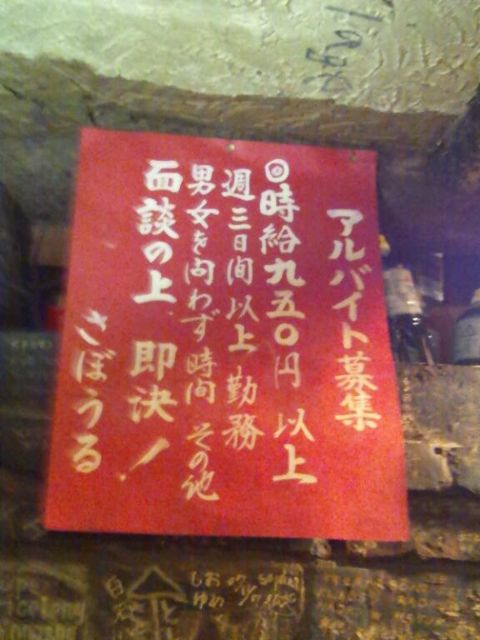 アルバイト募集
◎時給九五〇円以上
週三日間以上勤務
男女を問わず時間その他
面談の上即決!
さぼうる
しお
ゆめ